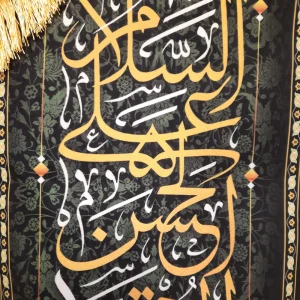 السلام
على
الحسن